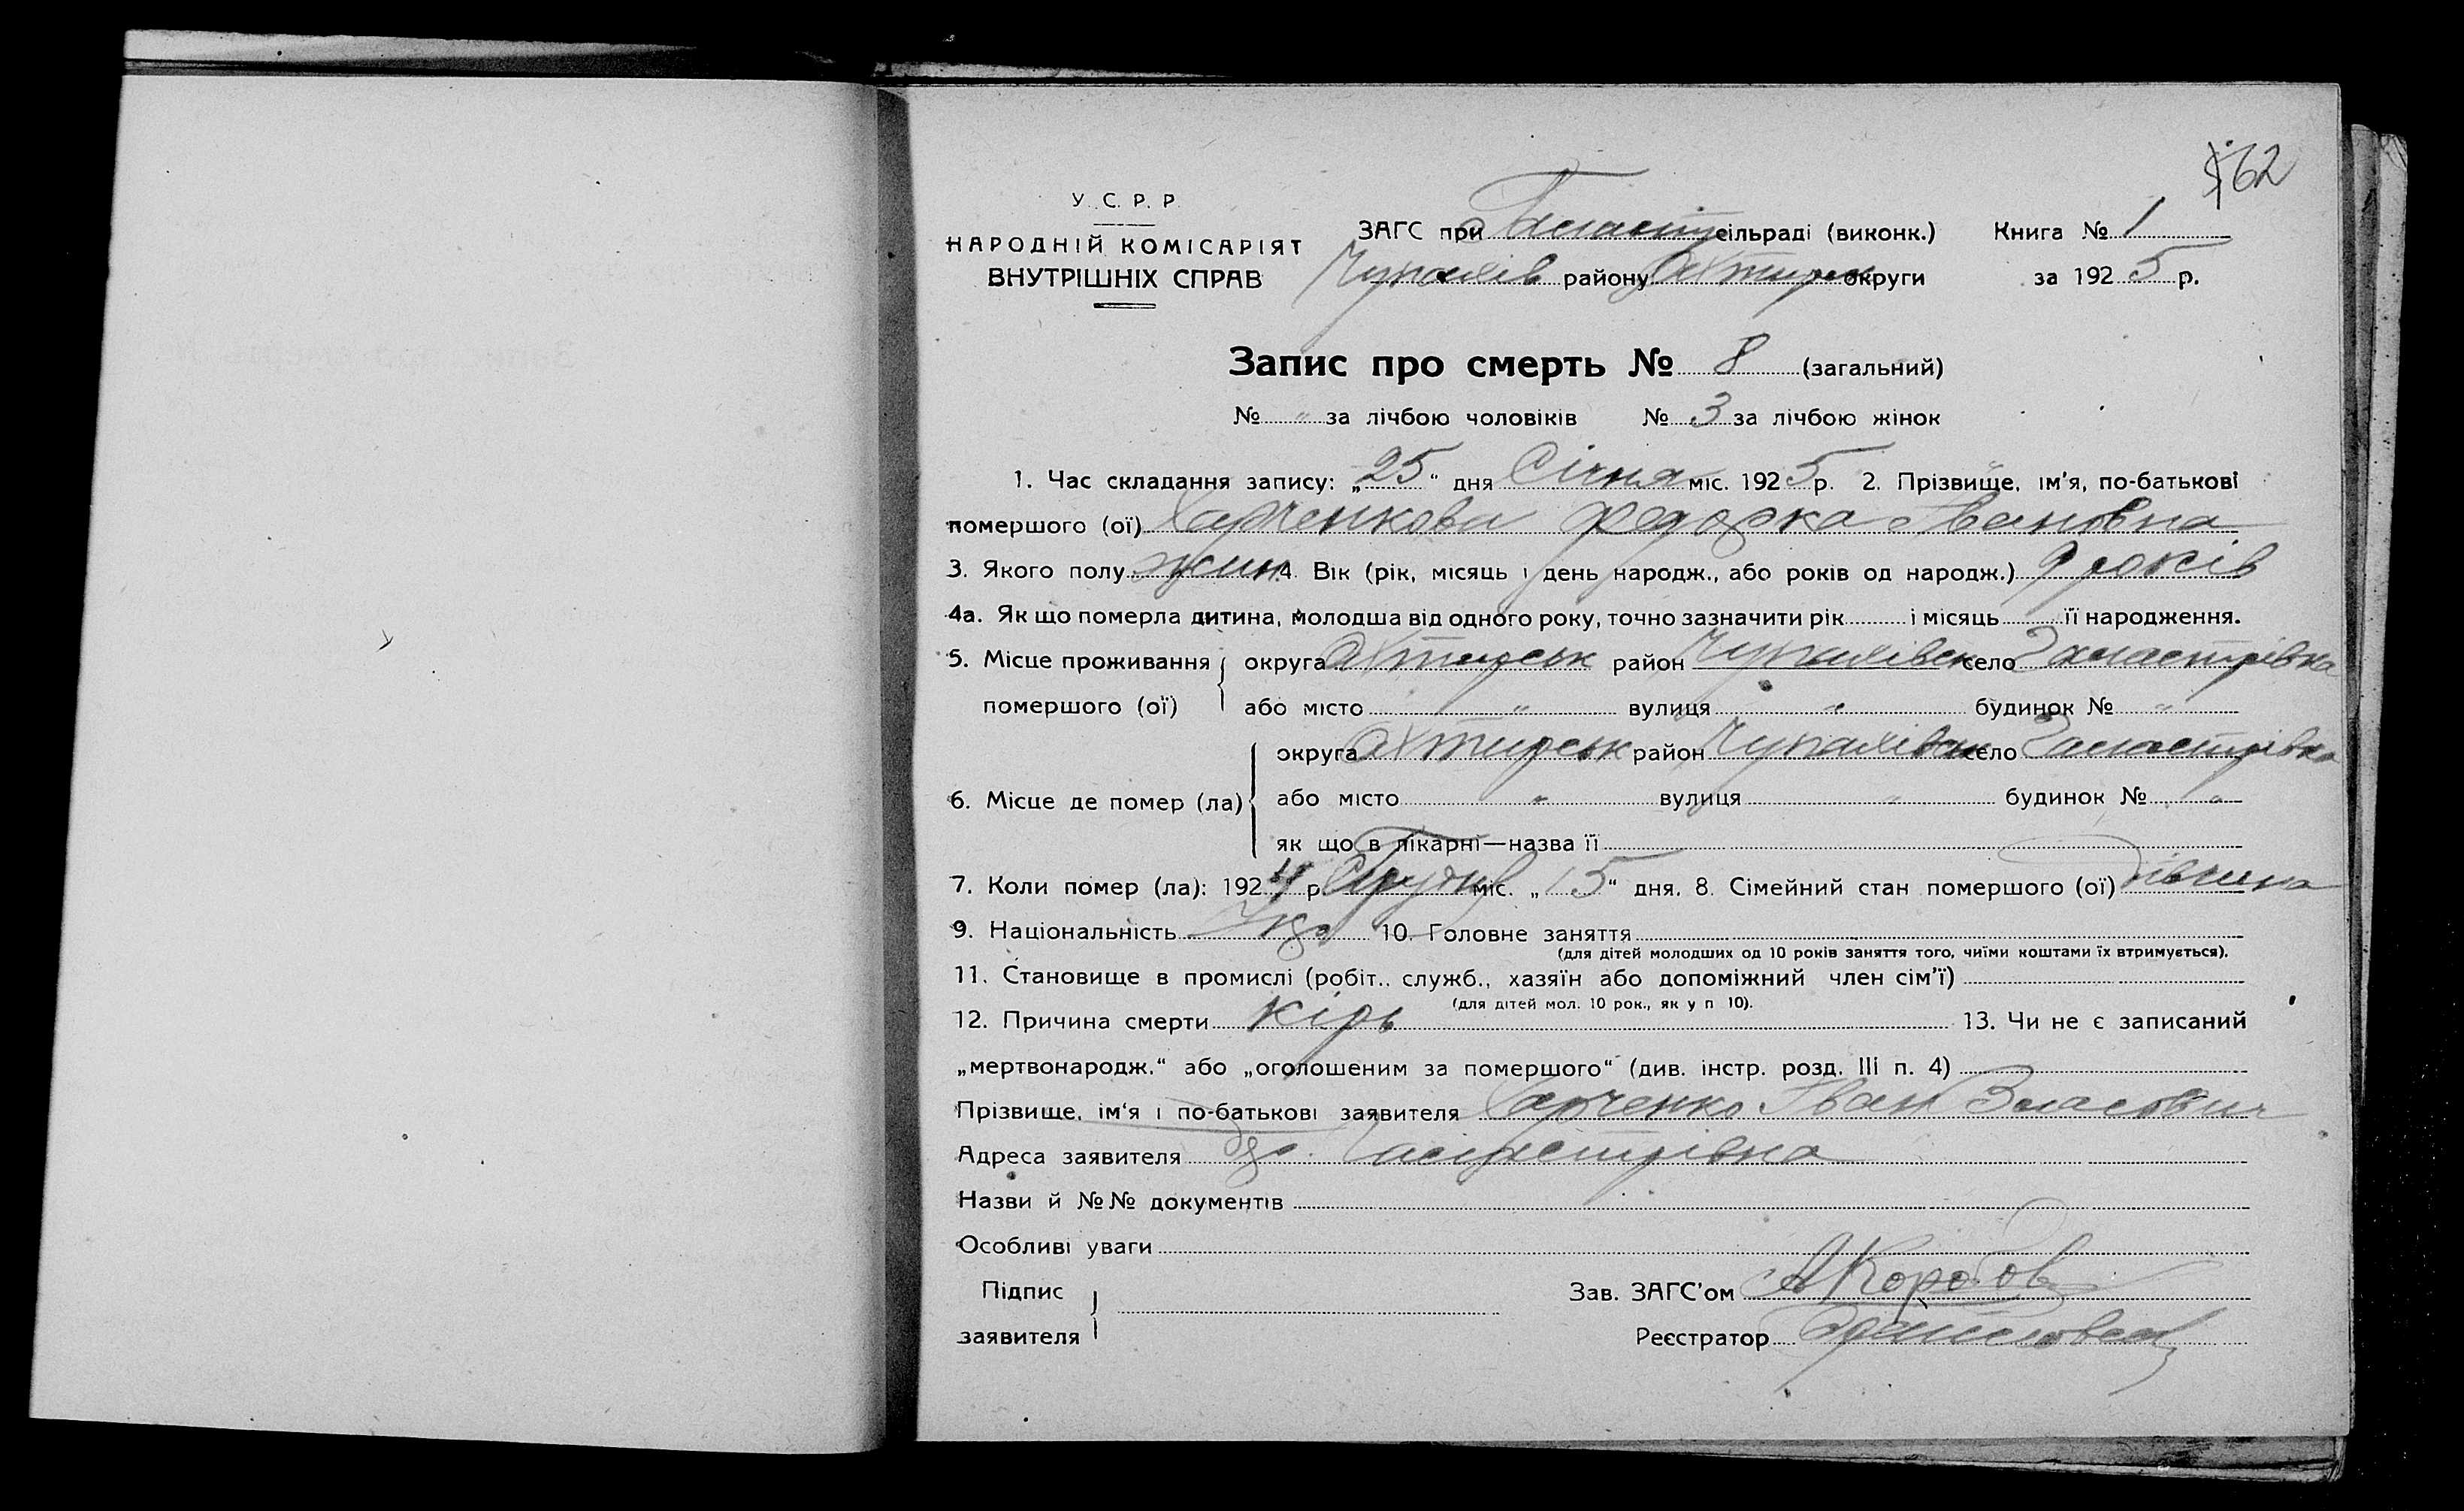 62
У. С. Р. Р.
НАРОДНІЙ КОМІСАРІЯТ
ВНУТРІШНІХ СПРАВ
ЗАГС при сільраді (виконк.) Книга № 1
Чупахів району Охтирс округи за 1925 р.
Запис про смерть № 8 (загальний)
№ " за лічбою чоловіків № 3 за лічбою жінок
1. Час складання запису: „25" дня Січня міс. 1925 р. 2. Прізвище, ім'я, по-батькові
помершого (ої) Харченкова Федорка Івановна
3. Якого полу жин 4. Вік (рік, місяць і день народж., або років од народж.) 9 років
4а. Як що померла дитина, молодша від одного року, точно зазначити рік і місяць її народження.
5. Місце проживання округа Охтирськ район Чупахівськ село
помершого (ої) або місто " вулиця " будинок № "
округа Охтирськ район Чупахівськ село
6. Місце де помер (ла) або місто " вулиця " будинок № "
як що в лікарні—назва її
7. Коли помер (ла): 1924 р. Грудня міс. „15" дня. 8. Сімейний стан помершого (ої) дівчина
9. Національність Укр 10. Головне заняття
(для дітей молодших од 10 років заняття того, чиїми коштами їх втримується).
11. Становище в промислі (робіт., служб., хазяїн або допоміжний член сім'ї)
(для дітей мол. 10 рок., як у п 10).
12. Причина смерти Кірь 13. Чи не є записаний
„мертвонародж." або „оголошеним за помершого" (див. інстр. розд. III п. 4)
Прізвище, ім'я і по-батькові заявителя Харченко Іван Власович
Адреса заявителя
Назви й №№ документів
Особливі уваги
Підпис
заявителя
Зав. ЗАГС'ом А Коробов
Реєстратор